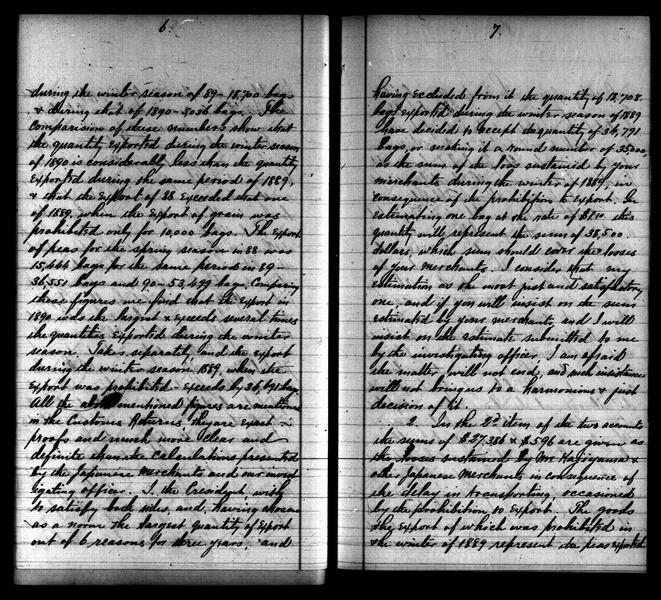 6.
during the winter season of 89 - 18,700 bags
& during that of 1890 - 5056 bags. The
Comparision of these numbers show that
the quantity exported during the winter season
of 1890 is considerably less than the quantity
exported during the same period of 1889,
& that the export of 88 exceeded that one
of 1889, when the export of grain was
prohibited only for 10,000 bags. The export
of peas for the spring season in 88 was
15,444 bags for the same period in 89 -
36,551 bags and 90 - 53,499 bags. Comparing
these figures we find that the export in
1890 was the largest & exceeds several times
the quantities exported during the winter
season. Taken separately, and the export
during the winter season 1889, when the
export was prohibited - exceeds by 36,791 bags
All the above mentioned figures are mentioned
in the Customs Returns, they are exact
proofs and much more clear and
definite than the Calculations presented
by the Japanese Merchants and our invest
igating officer. I, the President, wish
to satisfy both sides, and, having chosen
as a norm the largest quantity of export
out of 6 reasons for three years, and
7.
having excluded from it the quantity of 18,708
bags exported during the winter season of 1889
have decided to accept the quantity of 34,791
bags, or making it a round number of 35000,
as the sum of the loss sustained by your
merchants during the winter of 1889, in
consequence of the prohibition to export. In
estimating one bag at the rate of $1.10 this
quantity will represent the sum of 38,500
dollars, which sum should cover the losses
of your Merchants. I consider that my
estimation as the most just and satisfactory
one, and if you will insist on the sum
estimated by your merchants, and I will
insist on the estimate submitted to me
by the investigating officer, I am afraid
the matter will not end, and such insistence
will not bring us to a harmonious & just
decision of it.
2. In the 2d item of the two accounts
the sums of $27,386 & $596 are given as
the losses sustained by Mr. Kajiyama &
other Japanese Merchants in consequence of
the delay in transporting, occasioned
by the prohibition to export. The goods
the export of which was prohibited in
the winter of 1889 represent the peas exported